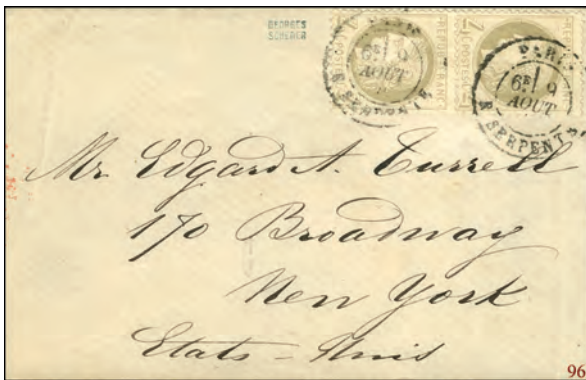 GEORGES
SCHERER
PARIS
6E 9
AOUT
R. SERPENTE
PARIS
6E 9
AOUT
R. SERPENTE
Mr Edgard A. Turrell
170 Broadway
New York
Etats-Unis
96